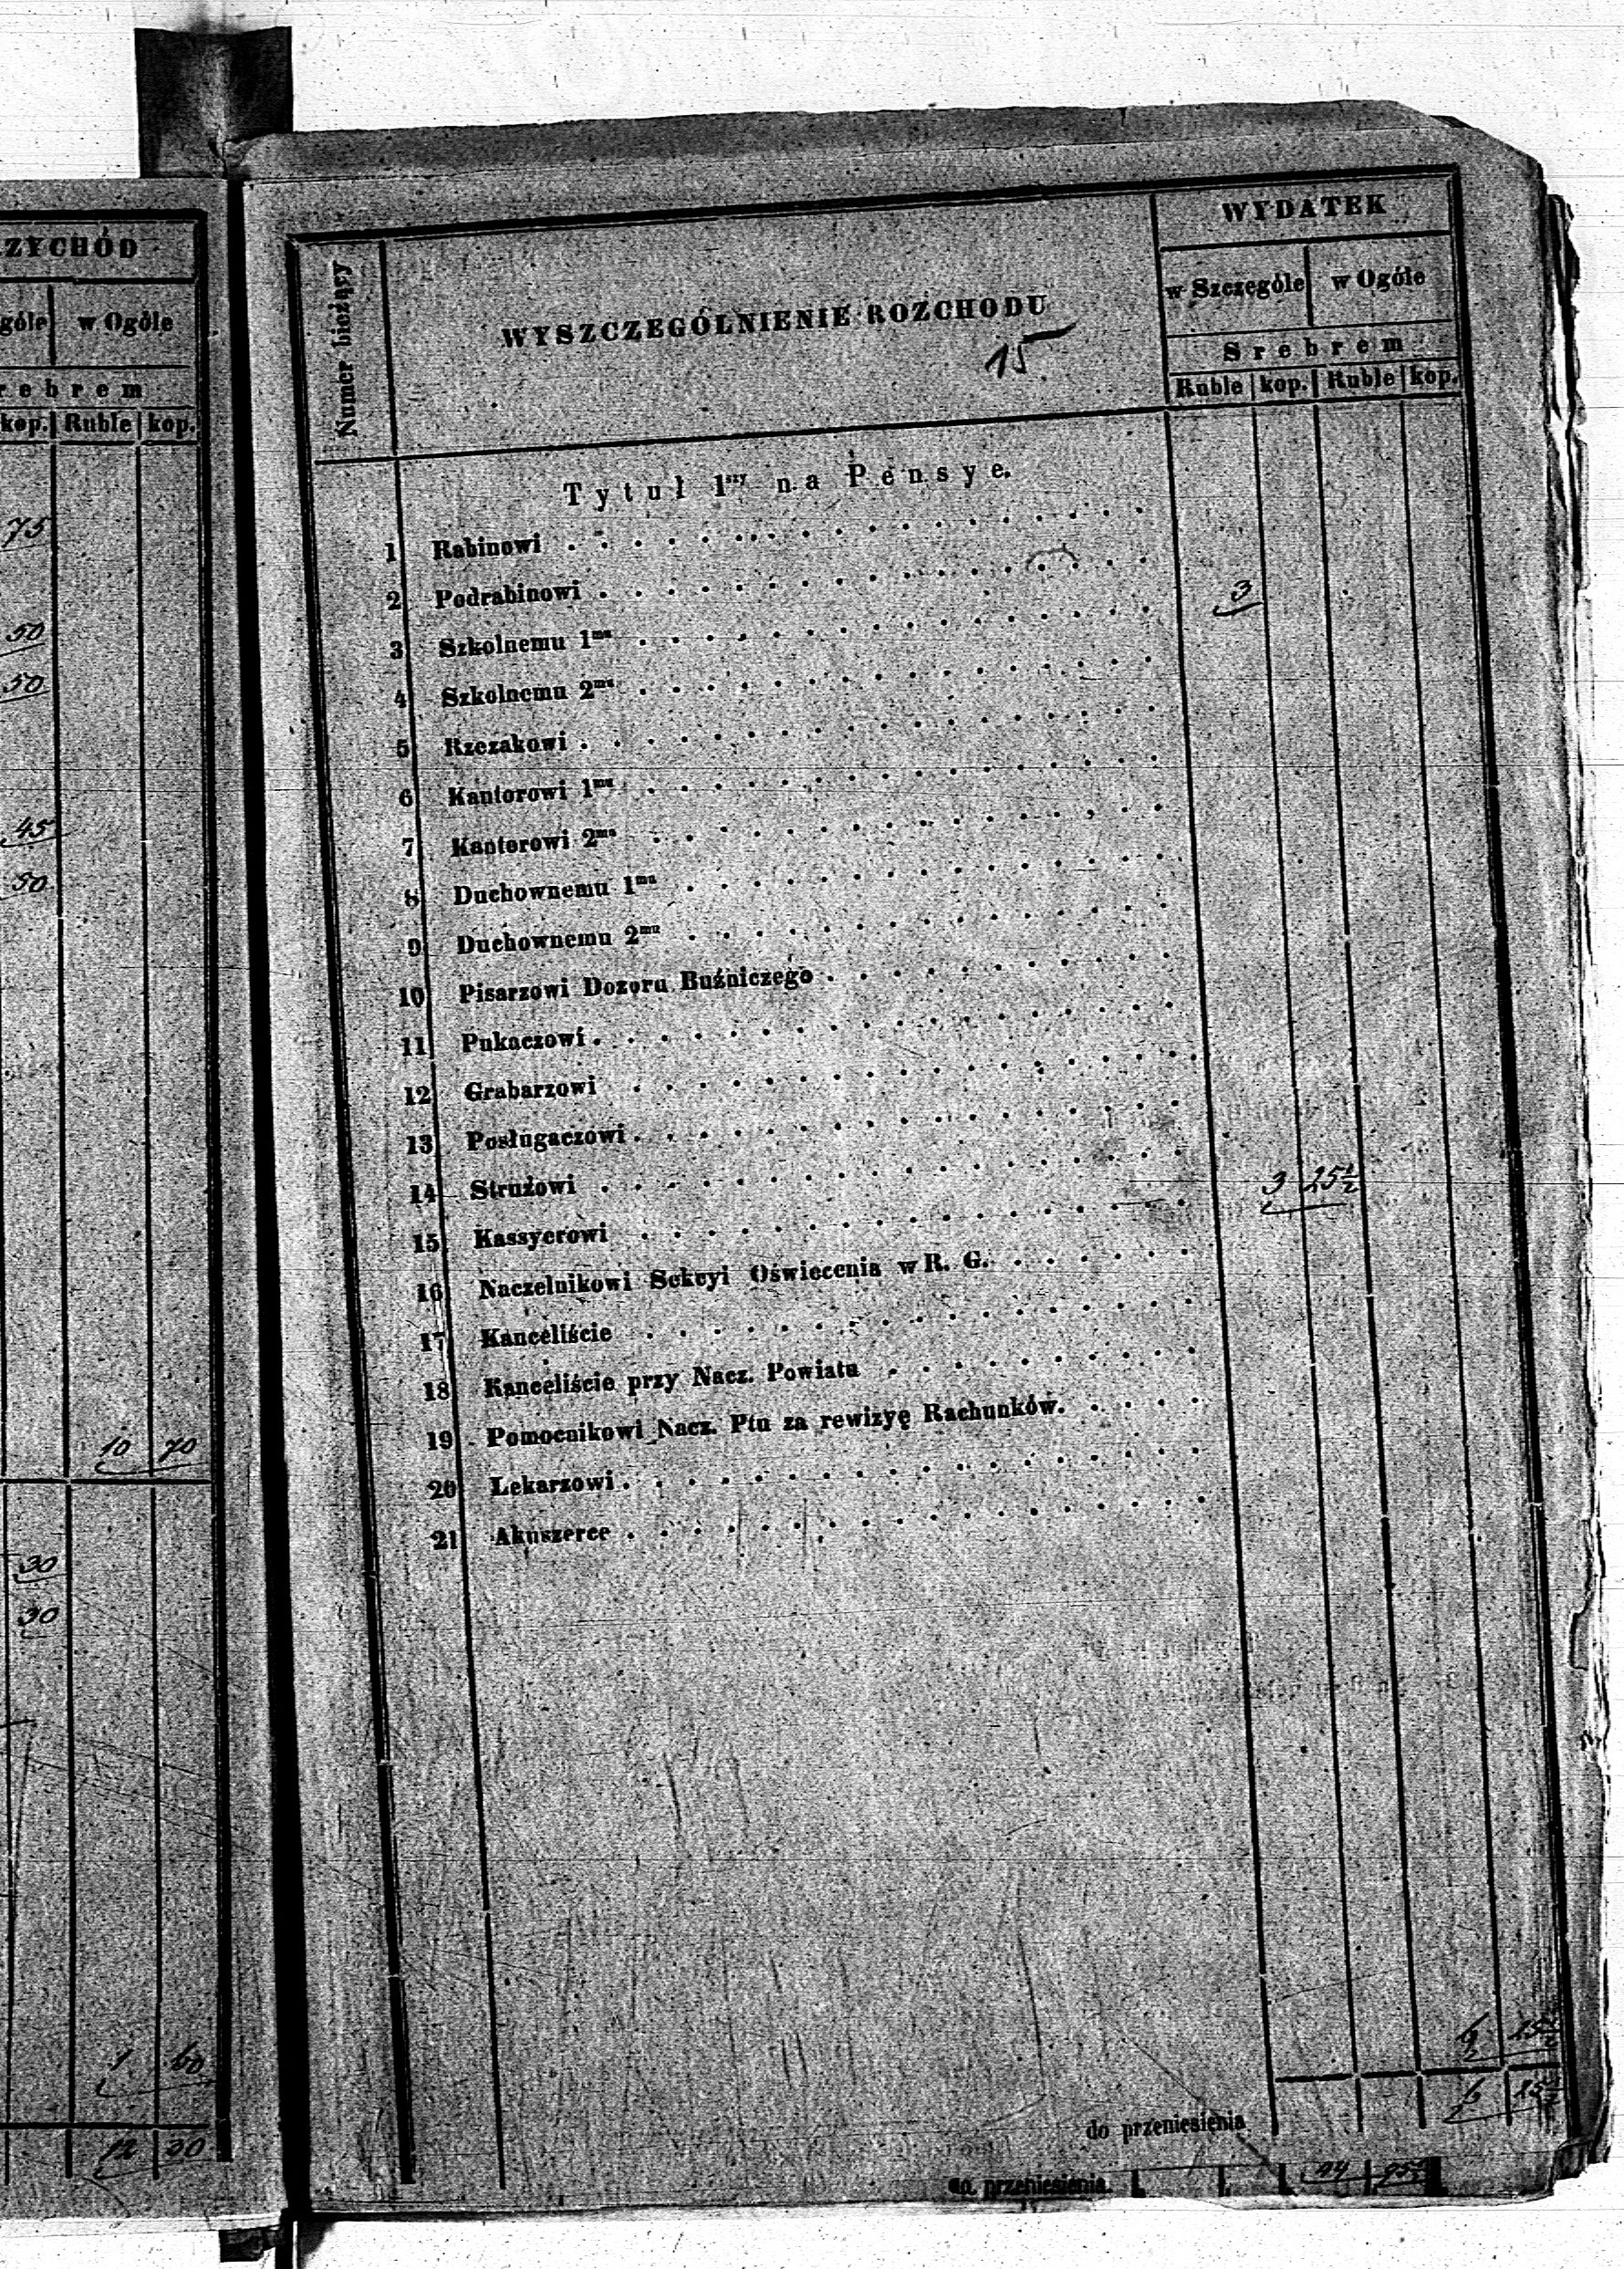 ZYCHÓD
góle w Ogóle
rebrem
kop. Ruble kop.
75
50
50
45
50
10 70
30
30
1 60
12 30
WYDATEK
Numer bieżący
WYSZCZEGÓLNIENIE ROZCHODU
w Szczególe w Ogóle
15
Srebrem
Ruble kop. Ruble kop.
Tytuł 1szy na Pensye.
1 Rabinowi
2 Podrabinowi
3 Szkolnemu 1mu 3
4 Szkolnemu 2mu
5 Rzezakowi
6 Kantorowi 1mu
7 Kantorowi 2mu
8 Duchownemu 1mu
9 Duchownemu 2mu
10 Pisarzowi Dozoru Buźniczego
11 Pukaczowi
12 Grabarzowi
13 Posługaczowi
14 Stružowi
15 Kassyerowi 3 25½
16 Naczelnikowi Sekcyi Oświecenia w R. G.
17 Kanceliście
18 Kanceliście przy Nacz. Powiatu
19 Pomocnikowi Nacz. Ptu za rewizyę Rachunków.
20 Lekarzowi
21 Akuszerce
6 25½
do przeniesienia 6 25½
do przeniesienia.